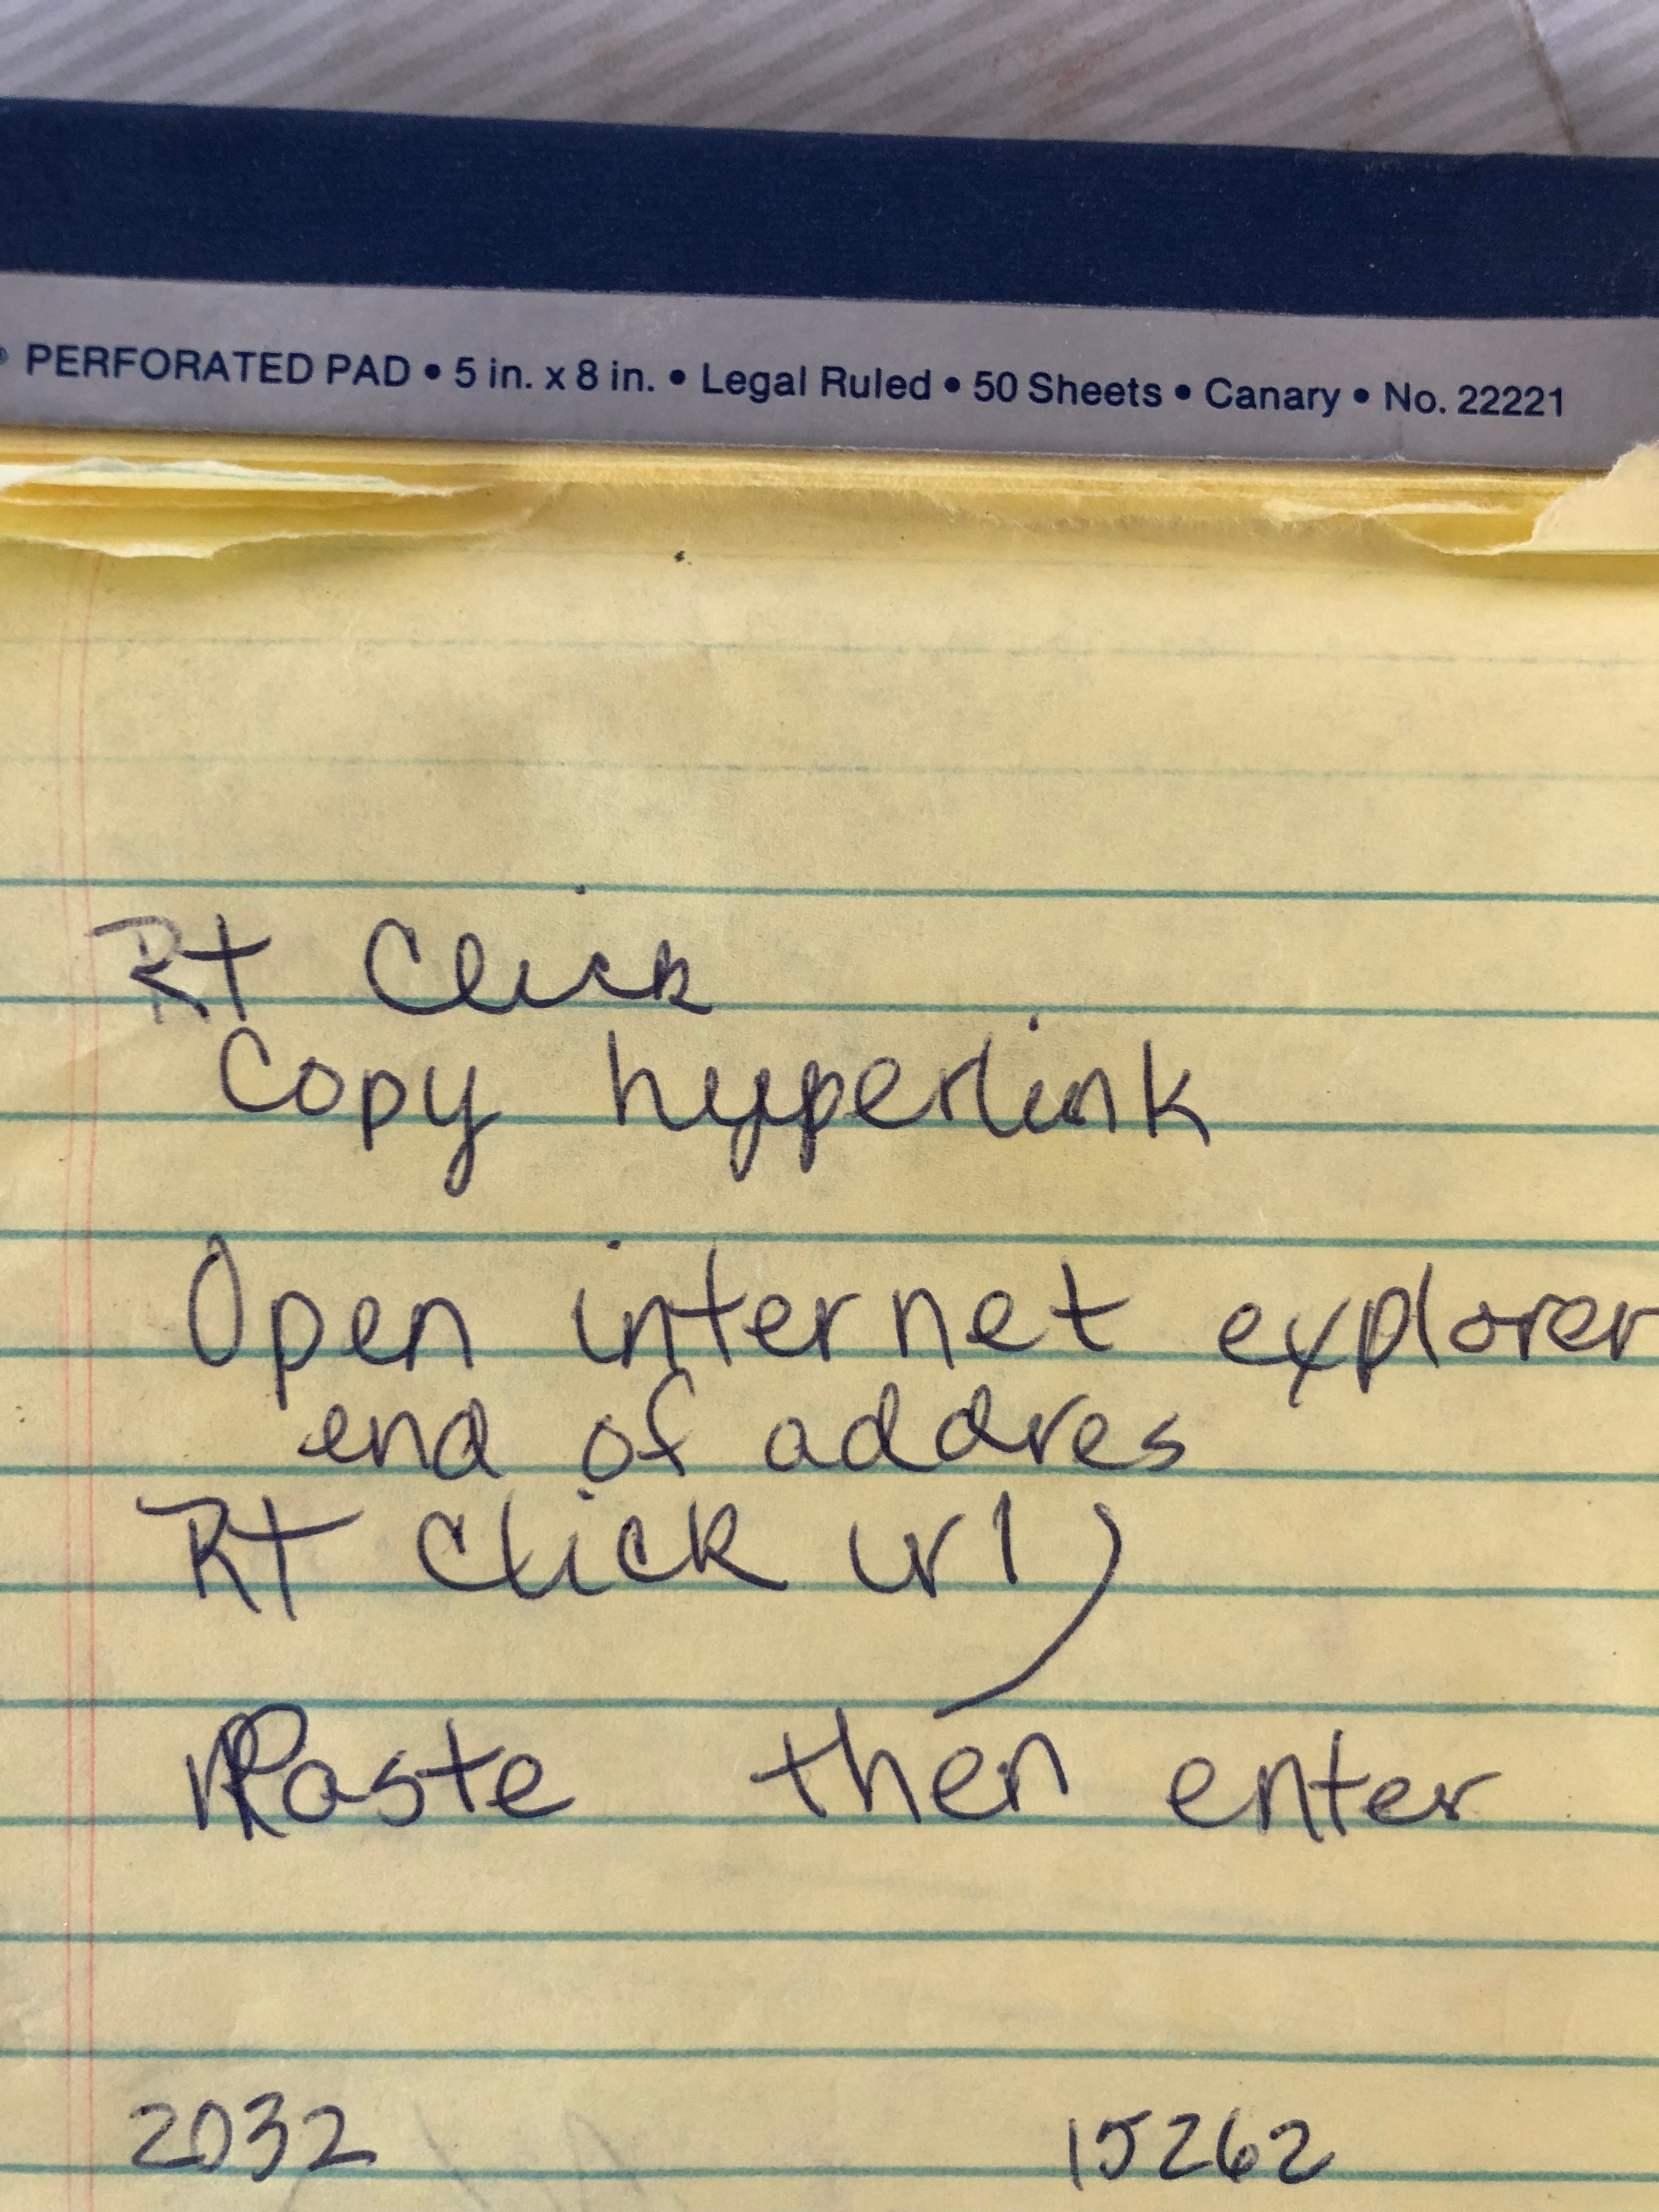 ® PERFORATED PAD • 5 in. x 8 in. • Legal Ruled • 50 Sheets • Canary • No. 22221
Rt Click
Copy hyperlink
Open internet explorer
end of addres
Rt Click url
Paste then enter
2032 15262